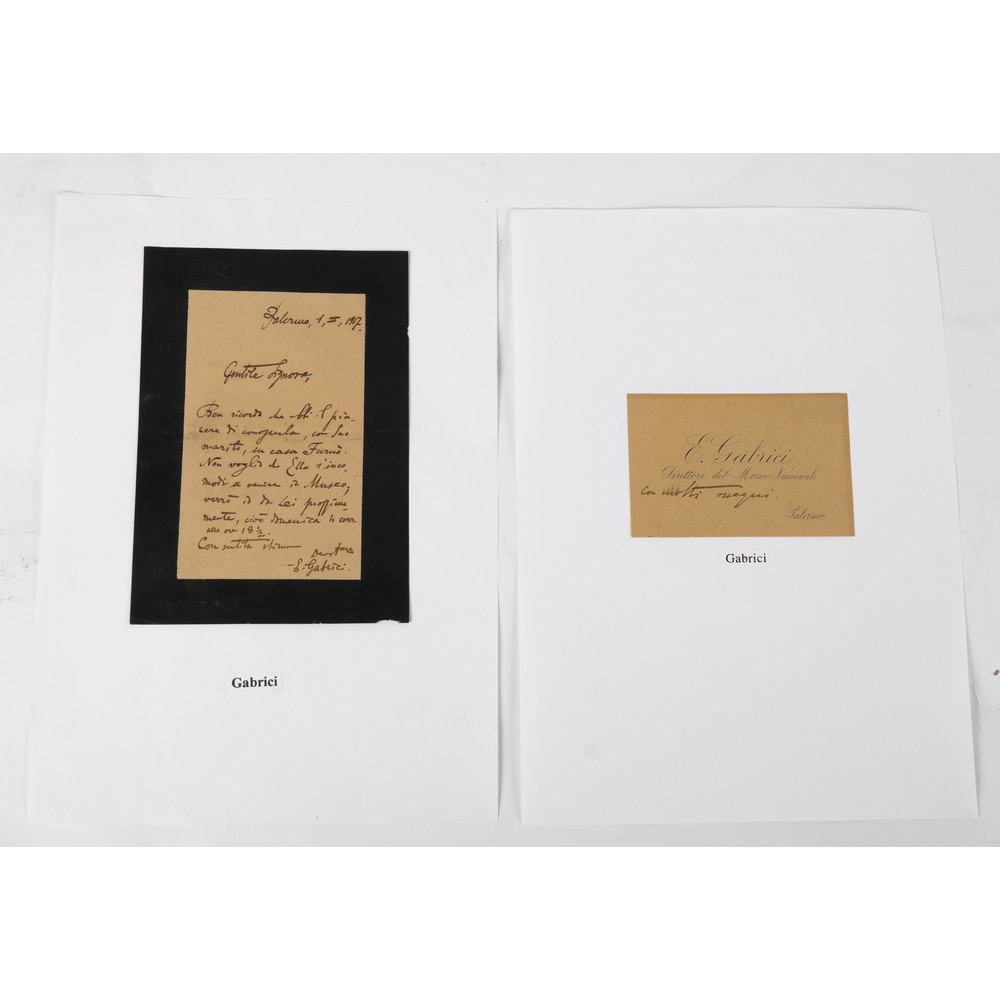 Palermo, 1, II, 1917.
Gentile Signora,
Ben ricordo che ebbi il pia-
cere di conoscerla, con Suo
marito, in casa
Non voglio che Ella s'inco-
modi a venire in Museo;
verrò io da Lei prossima-
mente, cioè domenica 4 corr.
alle ore 18 ½.
Con sentita stima
E. Gabrici.
Gabrici
E. Gabrici
Direttore del Museo Nazionale
Con molti ossequi.
Palermo
Gabrici